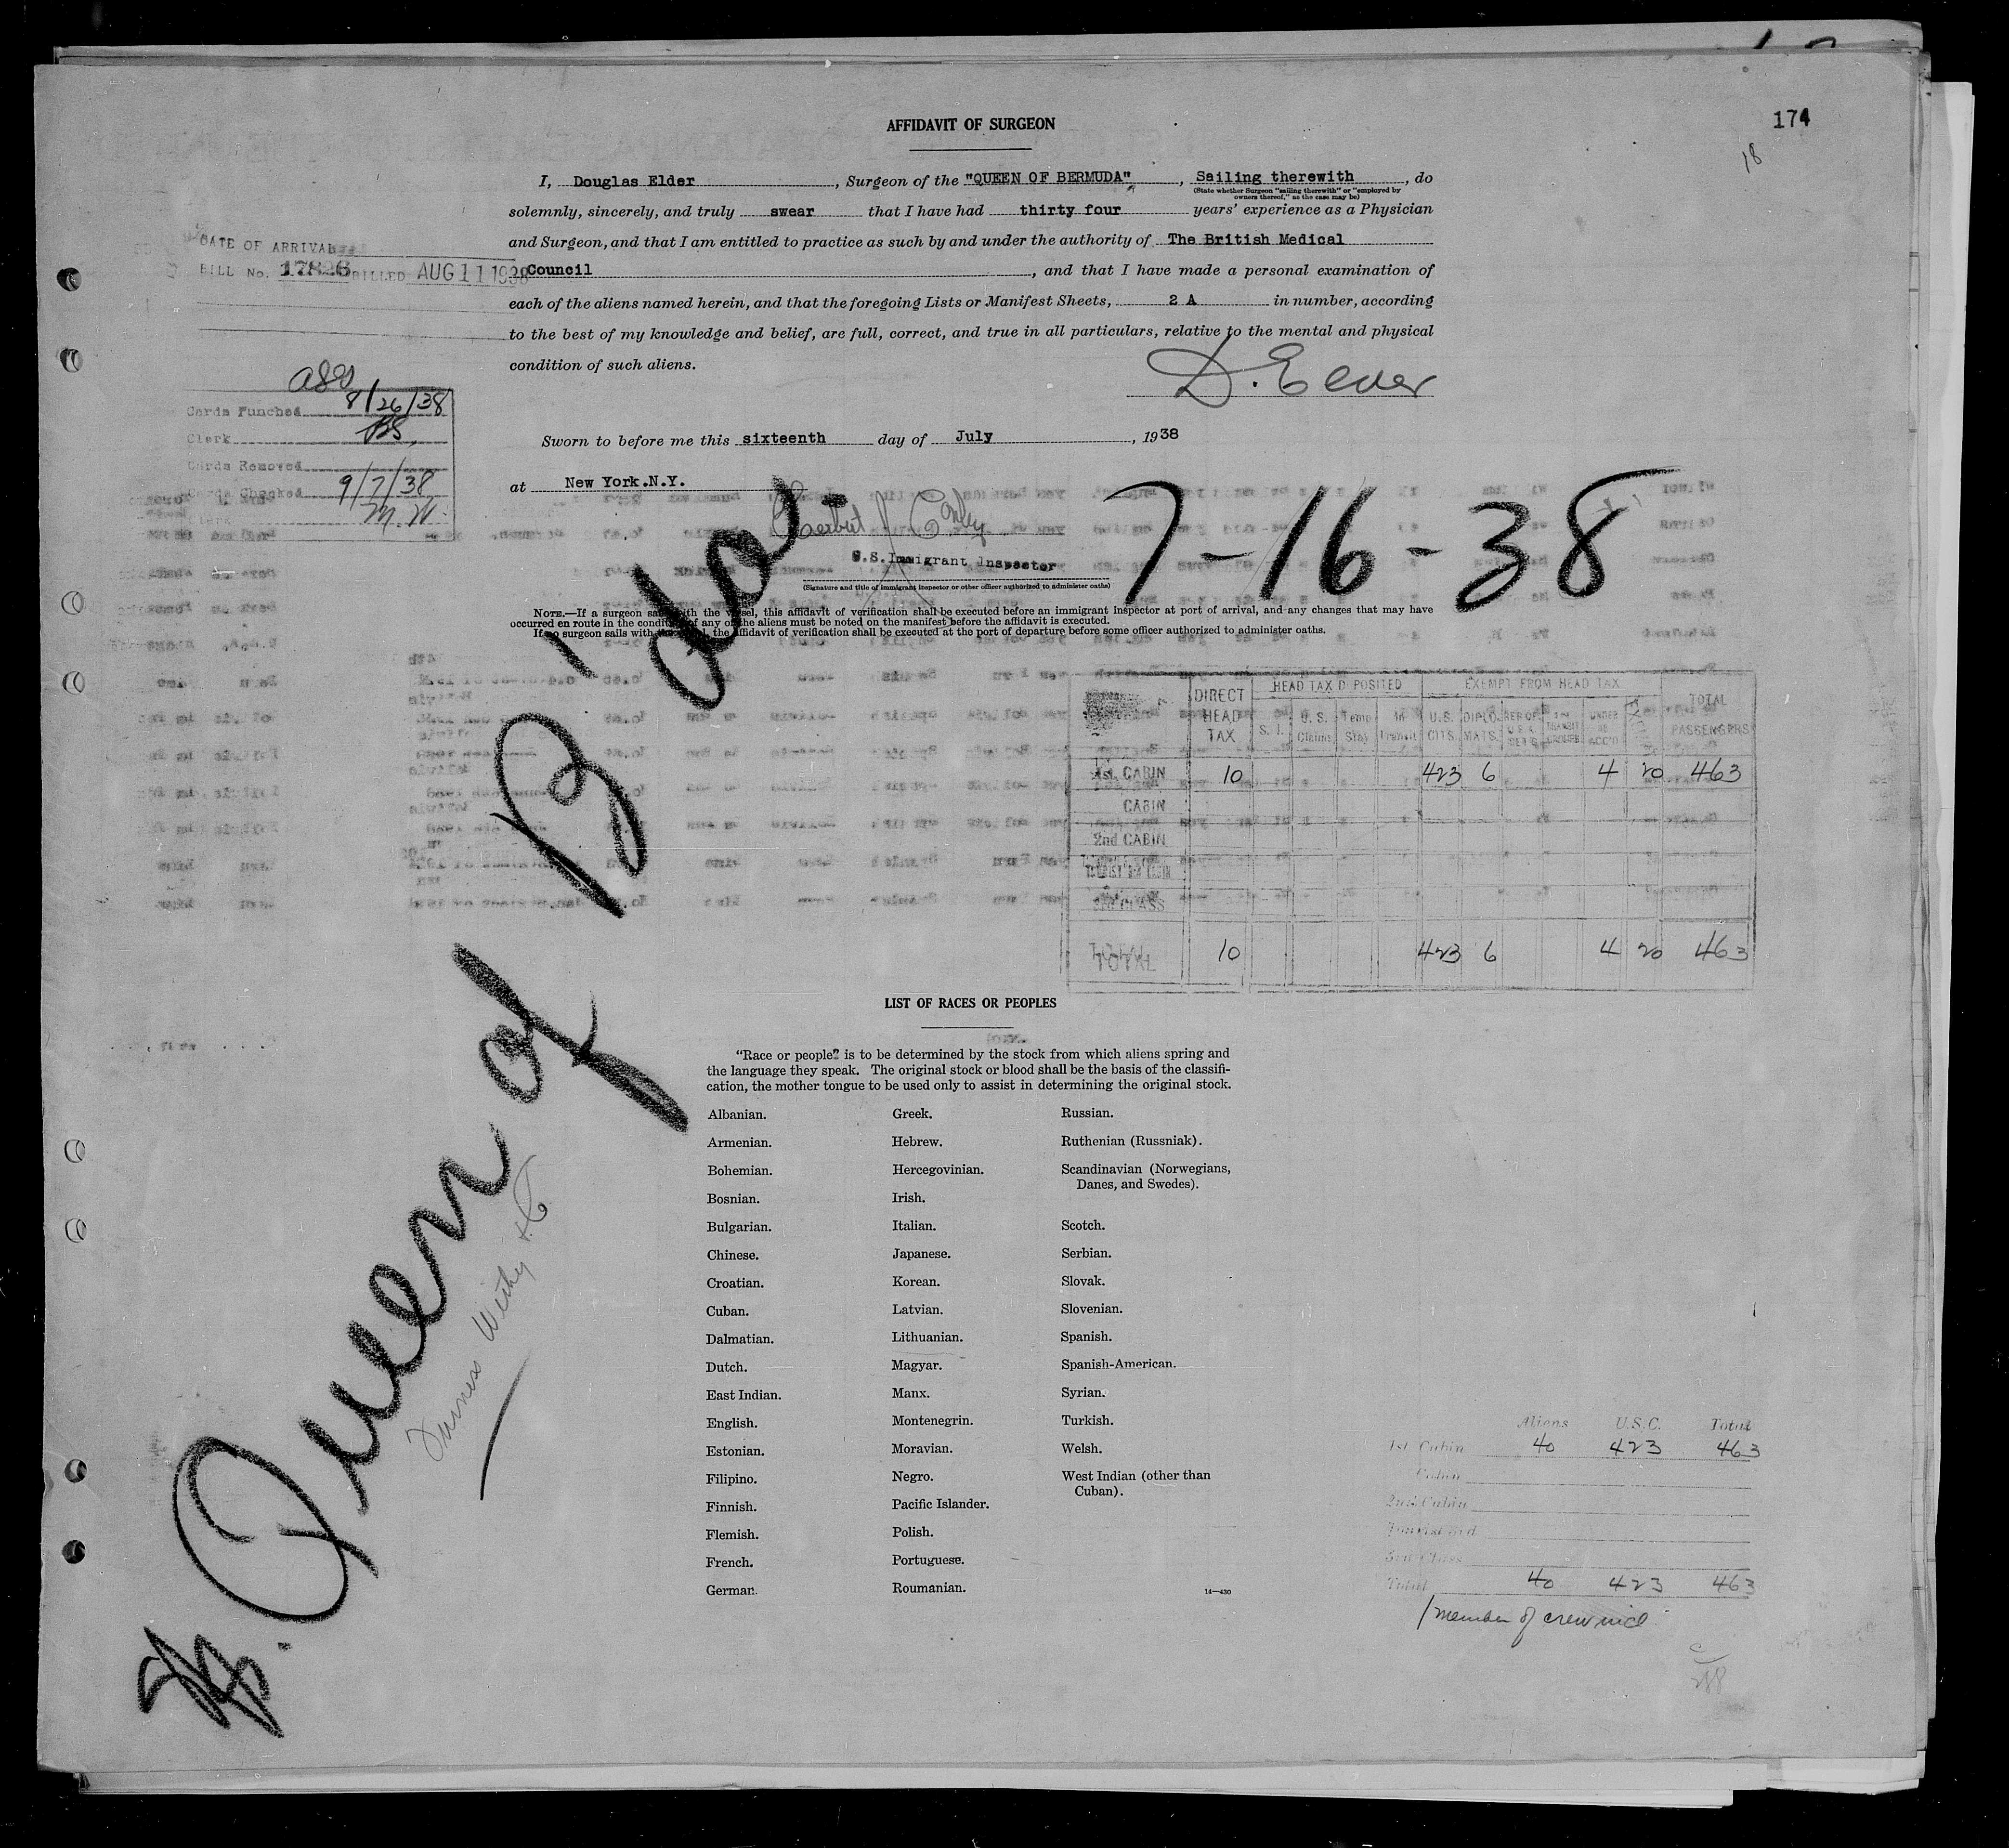 174
18
AFFIDAVIT OF SURGEON
I, Douglas Elder, Surgeon of the "QUEEN OF BERMUDA", Sailing therewith, do
(State whether Surgeon "sailing therewith" or "employed by
owners thereof," as the case may be)
solemnly, sincerely, and truly swear that I have had thirty four years' experience as a Physician
and Surgeon, and that I am entitled to practice as such by and under the authority of The British Medical
Council, and that I have made a personal examination of
each of the aliens named herein, and that the foregoing Lists or Manifest Sheets, 2 A in number, according
to the best of my knowledge and belief, are full, correct, and true in all particulars, relative to the mental and physical
condition of such aliens.
D. Elder
DATE OF ARRIVAL
BILL No. 17826 BILLED AUG 11 1938
Cards Punched 8/26/38
Clerk BS
Cards Removed
Cards Checked 9/7/38
Clerk M.W.
Sworn to before me this sixteenth day of July, 1938
at New York.N.Y.
U.S. Immigrant Inspector
(Signature and title of immigrant inspector or other officer authorized to administer oaths)
7-16-38
NOTE.—If a surgeon sails with the vessel, this affidavit of verification shall be executed before an immigrant inspector at port of arrival, and any changes that may have
occurred en route in the condition of any of the aliens must be noted on the manifest before the affidavit is executed.
If no surgeon sails with the vessel, the affidavit of verification shall be executed at the port of departure before some officer authorized to administer oaths.
Queen of B'da
DIRECT HEAD TAX
HEAD TAX DEPOSITED
EXEMPT FROM HEAD TAX
TOTAL PASSENGERS
S. I. U.S. Claims Temp Stay In Transit U.S. CITS. DIPLO. MATS.
1st. CABIN 10 423 6 4 20 463
CABIN
2nd CABIN
3rd CLASS
TOTAL 10 423 6 4 20 463
LIST OF RACES OR PEOPLES
"Race or people" is to be determined by the stock from which aliens spring and
the language they speak. The original stock or blood shall be the basis of the classifi-
cation, the mother tongue to be used only to assist in determining the original stock.
Albanian.
Armenian.
Bohemian.
Bosnian.
Bulgarian.
Chinese.
Croatian.
Cuban.
Dalmatian.
Dutch.
East Indian.
English.
Estonian.
Filipino.
Finnish.
Flemish.
French.
German.
Greek.
Hebrew.
Hercegovinian.
Irish.
Italian.
Japanese.
Korean.
Latvian.
Lithuanian.
Magyar.
Manx.
Montenegrin.
Moravian.
Negro.
Pacific Islander.
Polish.
Portuguese.
Roumanian.
Russian.
Ruthenian (Russniak).
Scandinavian (Norwegians,
Danes, and Swedes).
Scotch.
Serbian.
Slovak.
Slovenian.
Spanish.
Spanish-American.
Syrian.
Turkish.
Welsh.
West Indian (other than
Cuban).
14—430
Aliens U.S.C. Total
1st Cabin 40 423 463
Cabin
2nd Cabin
3rd Class
Total 40 423 463
1 member of crew incl